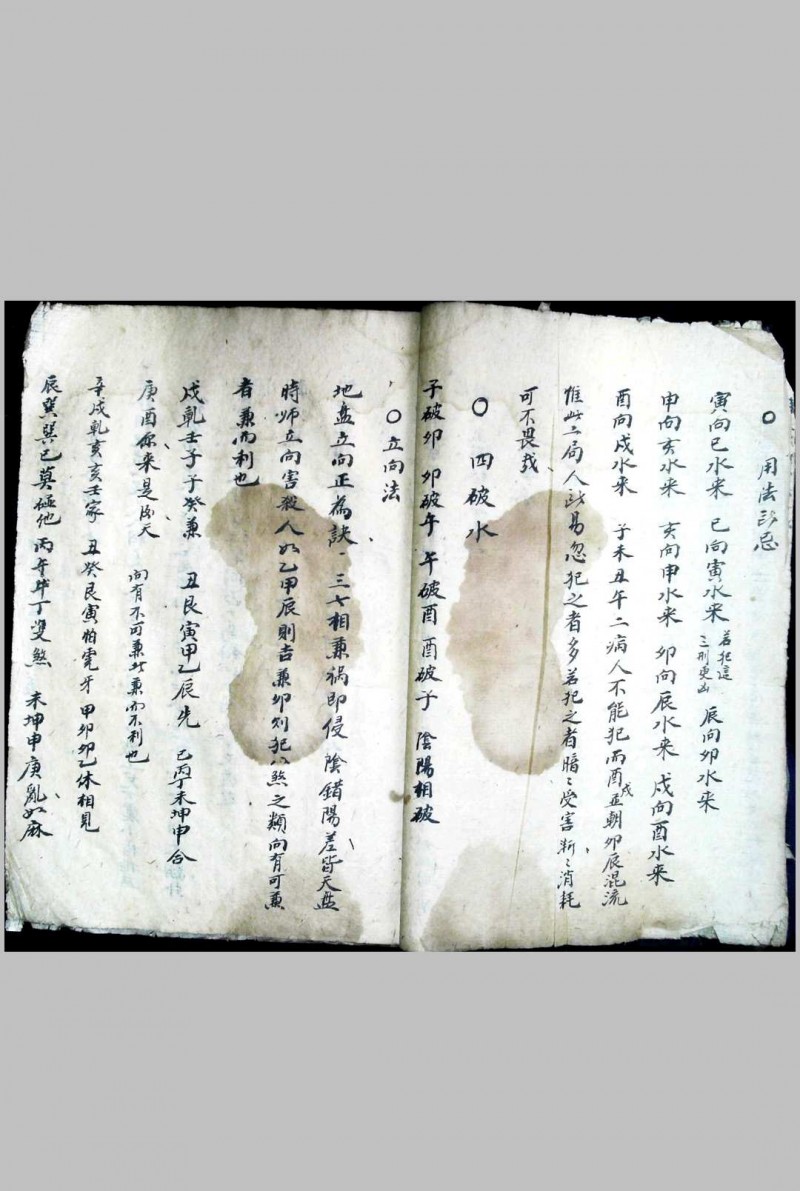 ○ 用法所忌
寅向巳水来 巳向寅水来 若犯這三刑更凶 辰向卯水来
申向亥水来 亥向申水来 卯向辰水来 戍向酉水来
酉向戍水来 子未丑午二病人不能犯而酉戍並朝卯辰混流
惟此六局人最易忽犯之者多若犯之者暗〻受害漸〻消耗
可不畏哉
○ 四破水
子破卯 卯破午 午破酉 酉破子 陰陽相破
○ 立向法
地盘立向正為訣 三七相兼禍即侵 陰錯陽差皆天盘
時师立向害殺人如乙甲辰則吉兼卯则犯八煞之類向有可兼
者兼而利也
戍乾壬子子癸兼 丑艮寅甲乙辰先 巳丙丁未坤申合
庚酉你来是后天 向有不可兼此兼而不利也
辛戍乾亥亥壬家 丑癸艮寅怕虎牙 甲卯卯乙休相見
辰巽巽巳莫碰他 丙午午丁雙煞 未坤申庚亂如麻